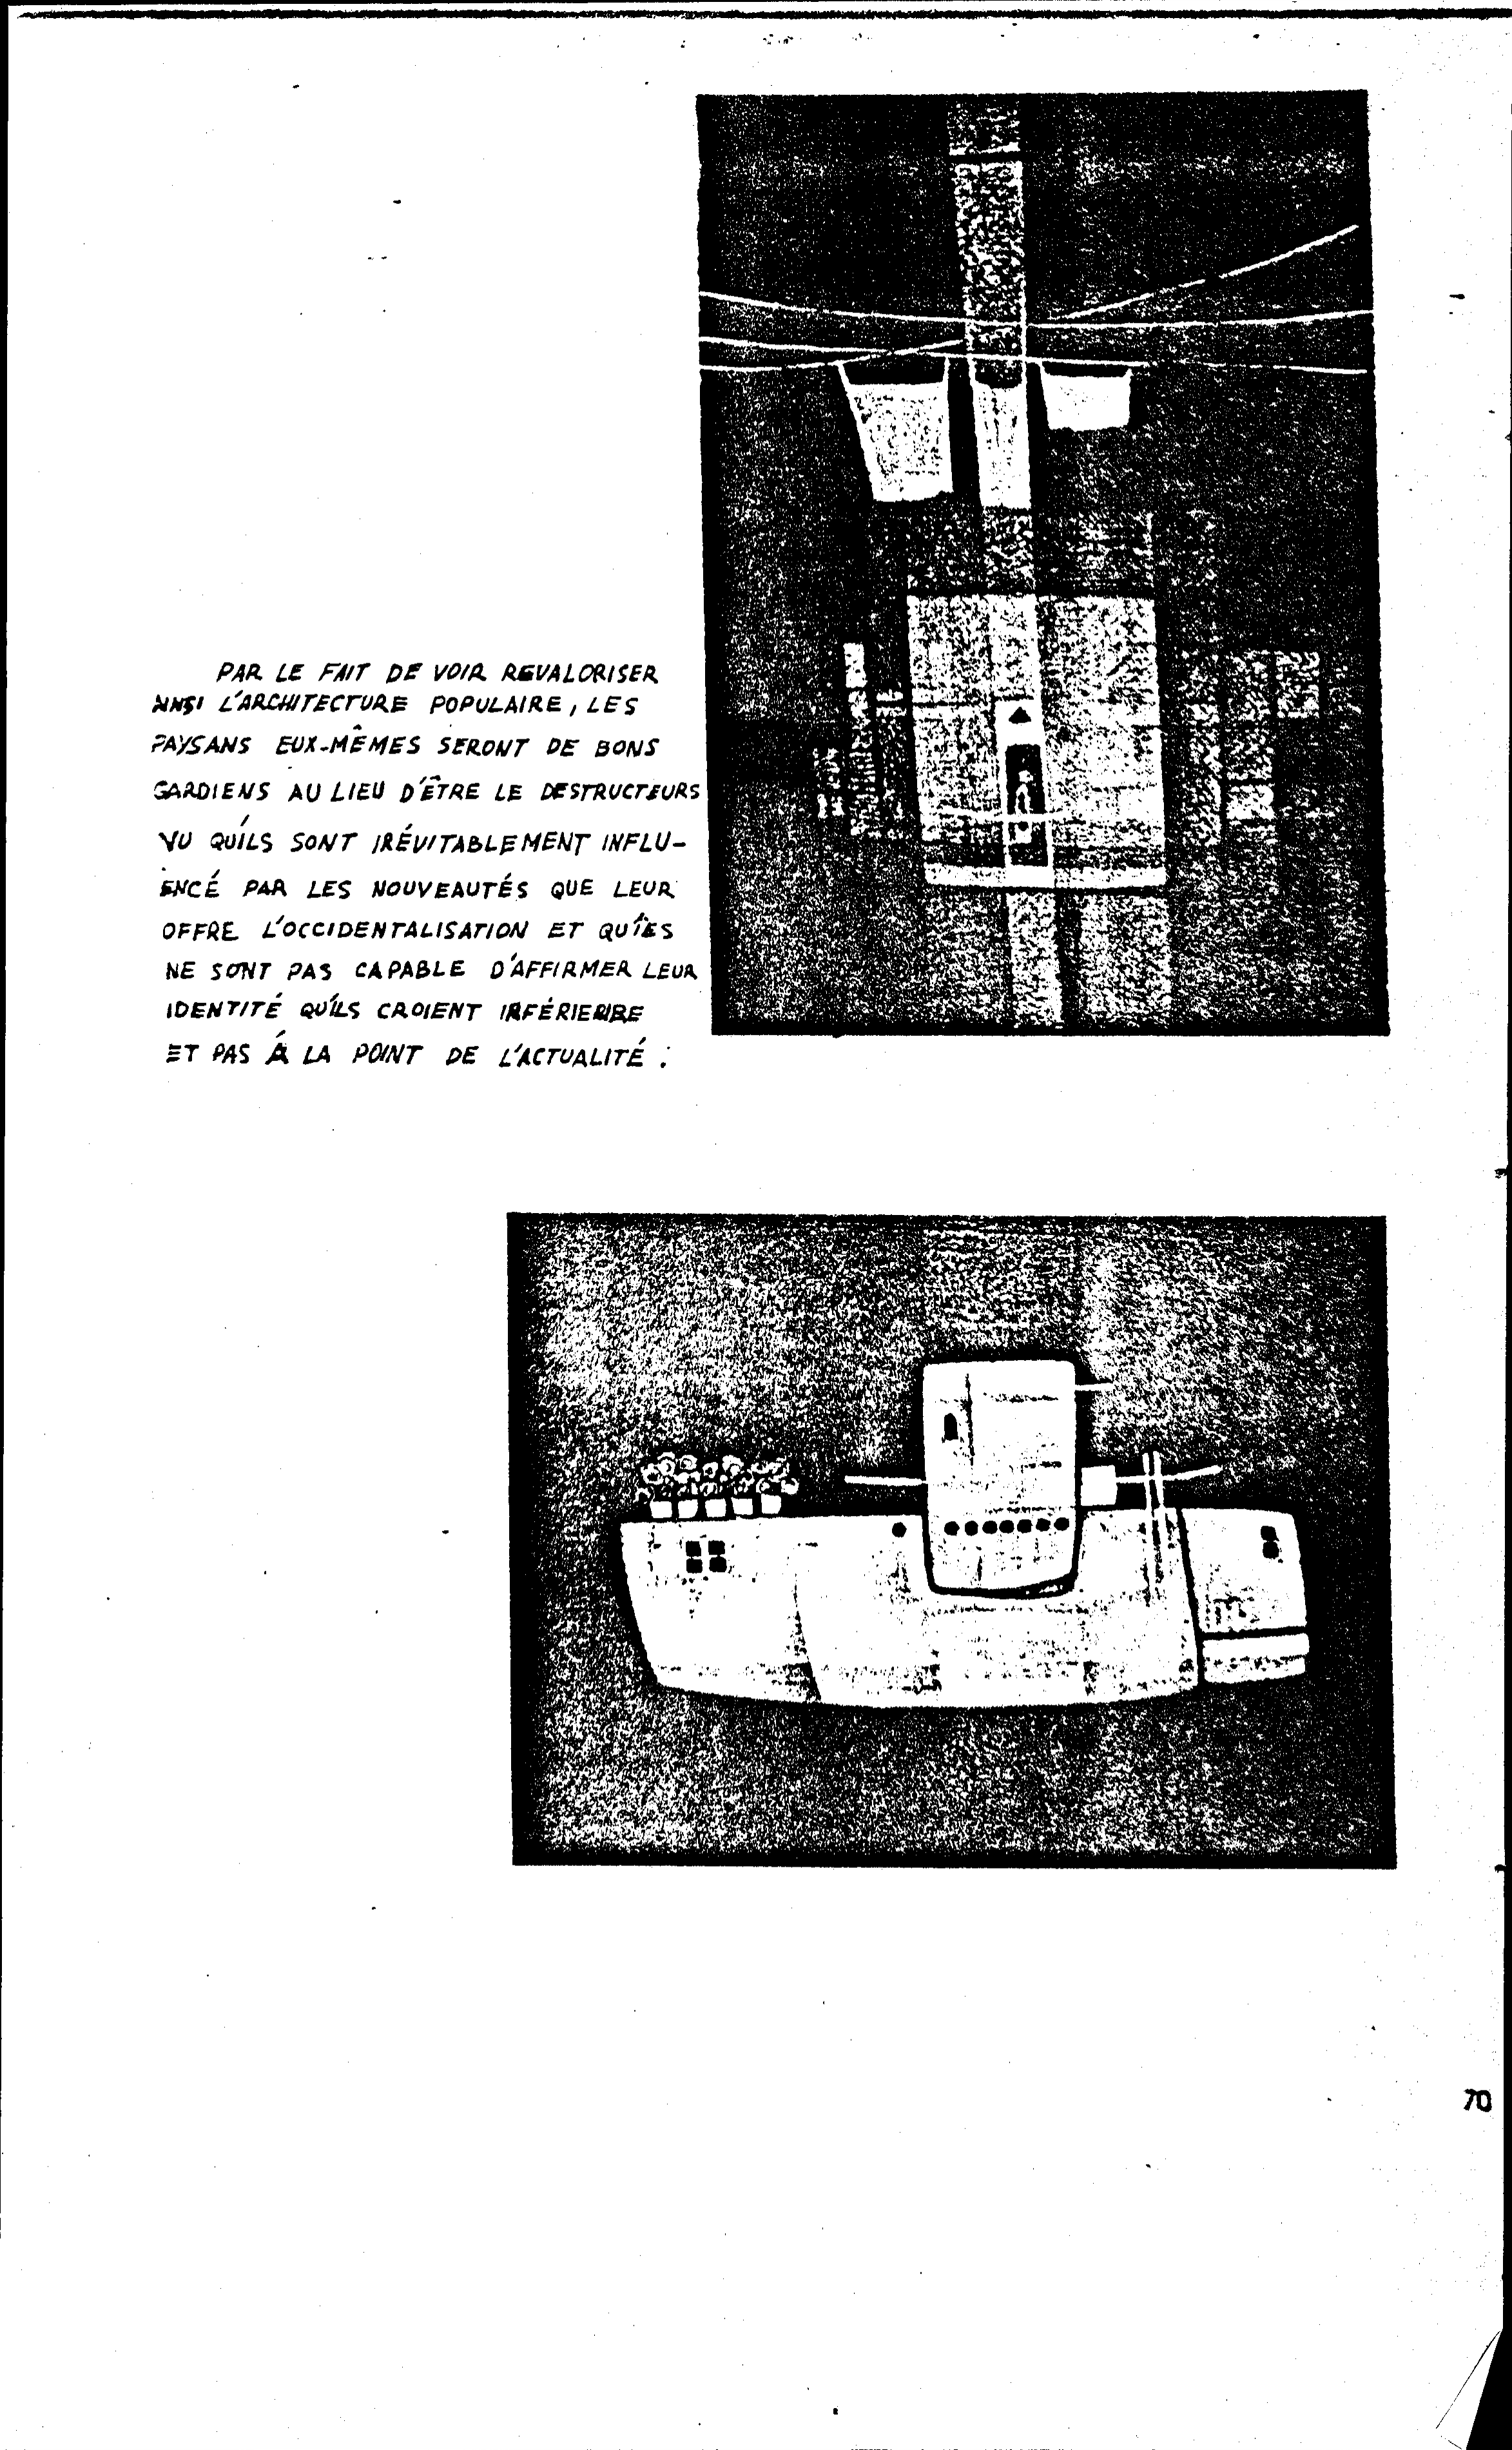 PAR LE FAIT DE VOIR REVALORISER
AINSI L'ARCHITECTURE POPULAIRE, LES
PAYSANS EUX-MÊMES SERONT DE BONS
GARDIENS AU LIEU D'ÊTRE LE DESTRUCTEURS
VU QU'ILS SONT INÉVITABLEMENT INFLU-
ENCÉ PAR LES NOUVEAUTÉS QUE LEUR
OFFRE L'OCCIDENTALISATION ET QU'ILS
NE SONT PAS CAPABLE D'AFFIRMER LEUR
IDENTITÉ QU'ILS CROIENT INFÉRIEURE
ET PAS À LA POINT DE L'ACTUALITÉ.
70